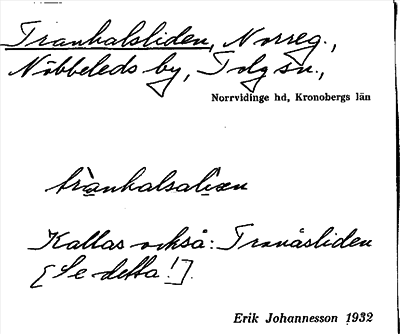 Tranhalsliden, Norreg.,
Nöbbeleds by, Tolg sn.,
Norrvidinge hd, Kronobergs län
trànhalsalìen
Kallas också: Tranåsliden
[Se detta!].
Erik Johannesson 1932